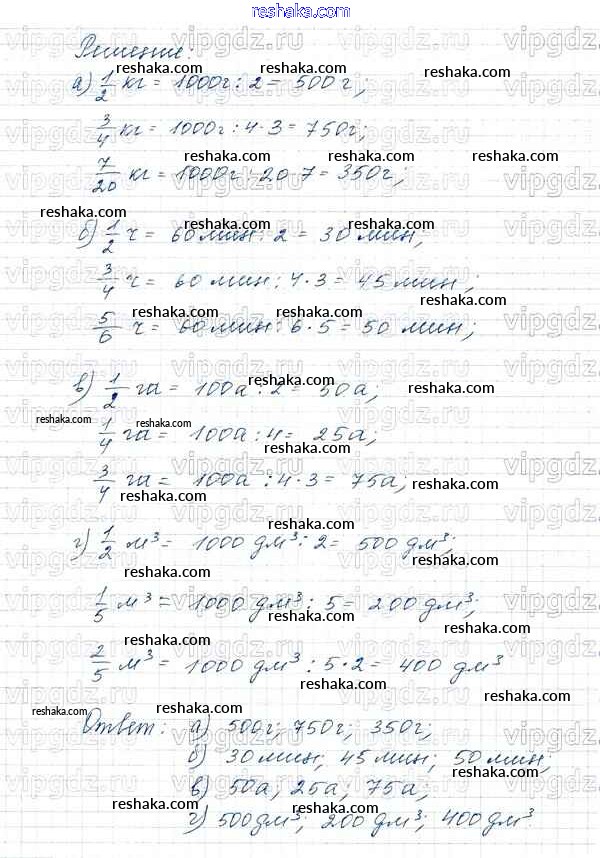 resheka.com
Решение:
а) 1/2 кг = 1000г : 2 = 500 г;
3/4 кг = 1000г : 4 · 3 = 750г;
7/20 кг = 1000г : 20 · 7 = 350г;
б) 1/2 ч = 60 мин : 2 = 30 мин;
3/4 ч = 60 мин : 4 · 3 = 45 мин;
5/6 ч = 60 мин : 6 · 5 = 50 мин;
в) 1/2 га = 100а : 2 = 50а;
1/4 га = 100а : 4 = 25а;
3/4 га = 100а : 4 · 3 = 75а;
г) 1/2 м³ = 1000 дм³ : 2 = 500 дм³;
1/5 м³ = 1000 дм³ : 5 = 200 дм³;
2/5 м³ = 1000 дм³ : 5 · 2 = 400 дм³
Ответ: а) 500г; 750г; 350г;
б) 30 мин; 45 мин; 50 мин;
в) 50а; 25а; 75а;
г) 500дм³; 200 дм³; 400дм³